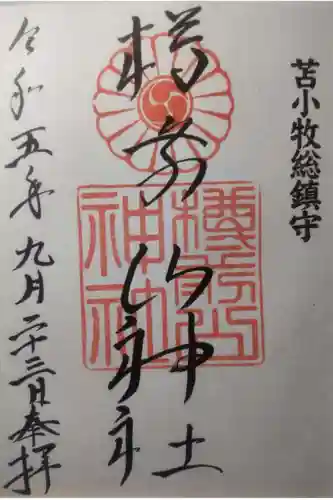 苫小牧総鎮守
樽前山神社
樽前山神社
令和五年九月二十三日奉拝